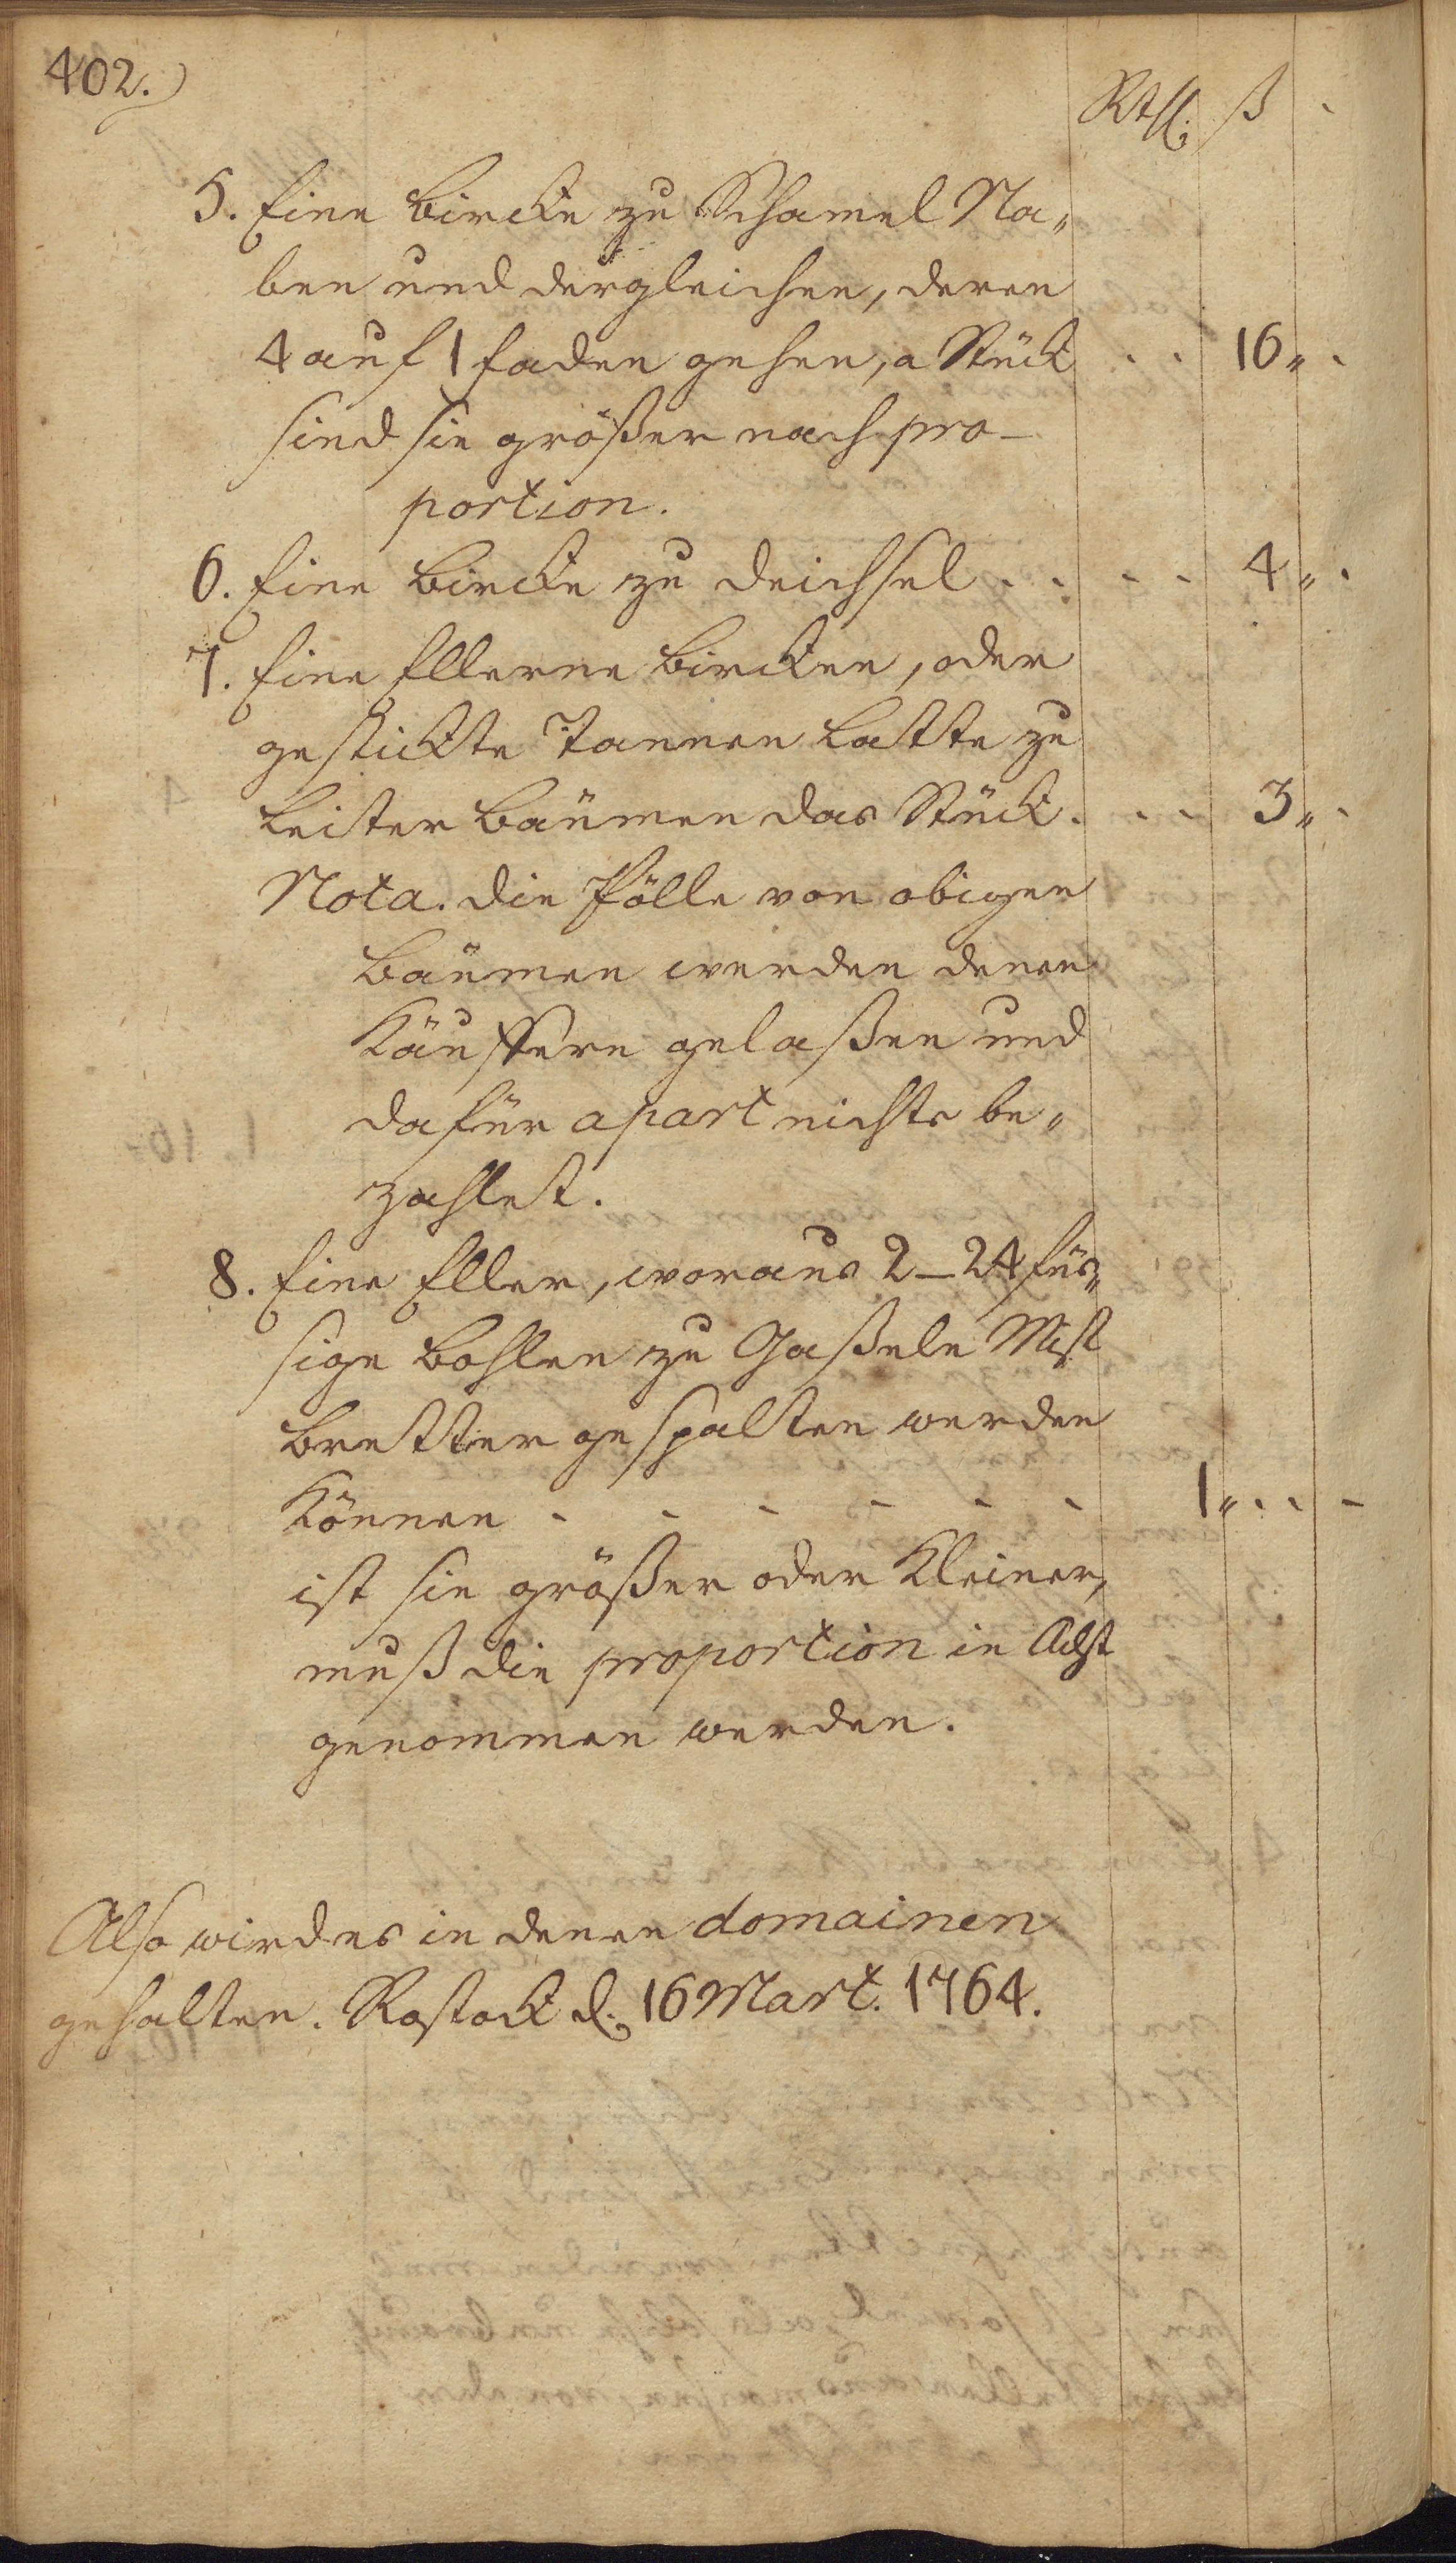 402.)
Rthl. ß
5. Eine Bircke zu Schamel Na„
ben und dergleichen, deren
4 auf 1 Faden gehen, a Stück . . 16„ .
sind sie größer nach pro-
portion.
6. Eine Bircke zu Deichsel . . . . 4„ .
7. Eine Ellerne Bircken, oder
gestickte Tannen Latte zu
Leiter Bäumen das Stück . . . 3„ .
Nota. die Pölle von obigen
Bäumen werden denen
Käuffern gelaßen und
dafür apart nichts be„
zahlet.
8. Eine Eller, woraus 2-24 füs„
sige Bohlen zu Gaßeln Mist
Bretter gespalten werden
Können - - - - - - 1„ . . -
ist sie größer oder Kleiner,
muß die proportion in Acht
genommen werden.
Also wird es in denen domainen
gehalten. Rostock d. 16 Mart. 1764.